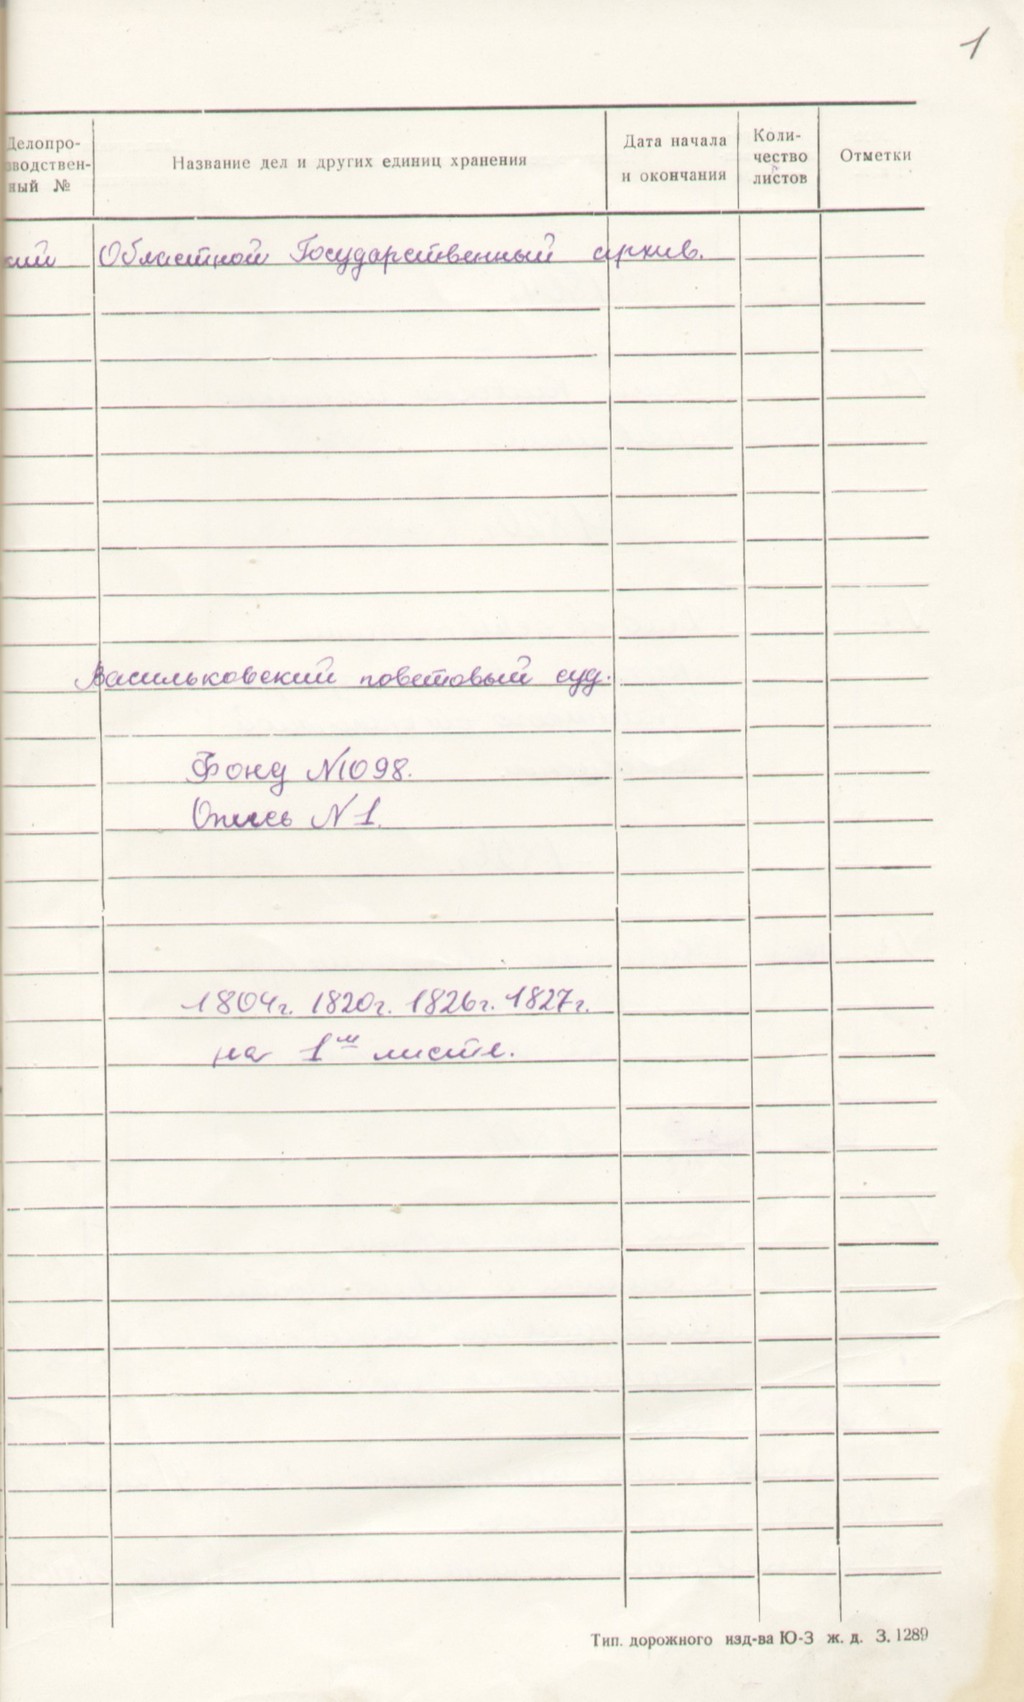 1
Делопро-
зводствен-
ный №
Название дел и других единиц хранения
Дата начала
и окончания
Коли-
чество
листов
Отметки
кий Областной Государственный архив.
Васильковский повётовый суд.
Фонд N1098.
Опись N1.
1804г. 1820г. 1826г. 1827г.
на 1м листе.
Тип. дорожного изд-ва Ю-З ж. д. З. 1289